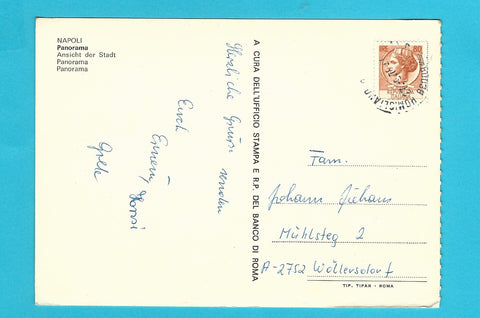 NAPOLI
Panorama
Ansicht der Stadt
Panorama
Panorama
Herzliche Grüsse senden
Euch
Grete
A CURA DELL'UFFICIO STAMPA E R.P. DEL BANCO DI ROMA
80
Fam.
Johann
Mühlsteg 2
A-2752 Wöllersdorf
TIP. TIPAR - ROMA